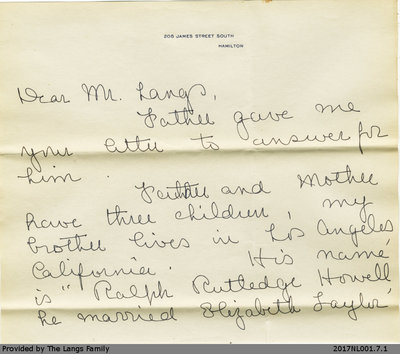 206 JAMES STREET SOUTH
HAMILTON
Dear Mr. Langs,
Father gave me
your letter to answer for
him.
Father and Mother
have three children, my
brother lives in Los Angeles,
California. His name
is "Ralph Rutledge Howell,
he married Elizabeth Taylor,
Provided by The Langs Family
2017NL001.7.1